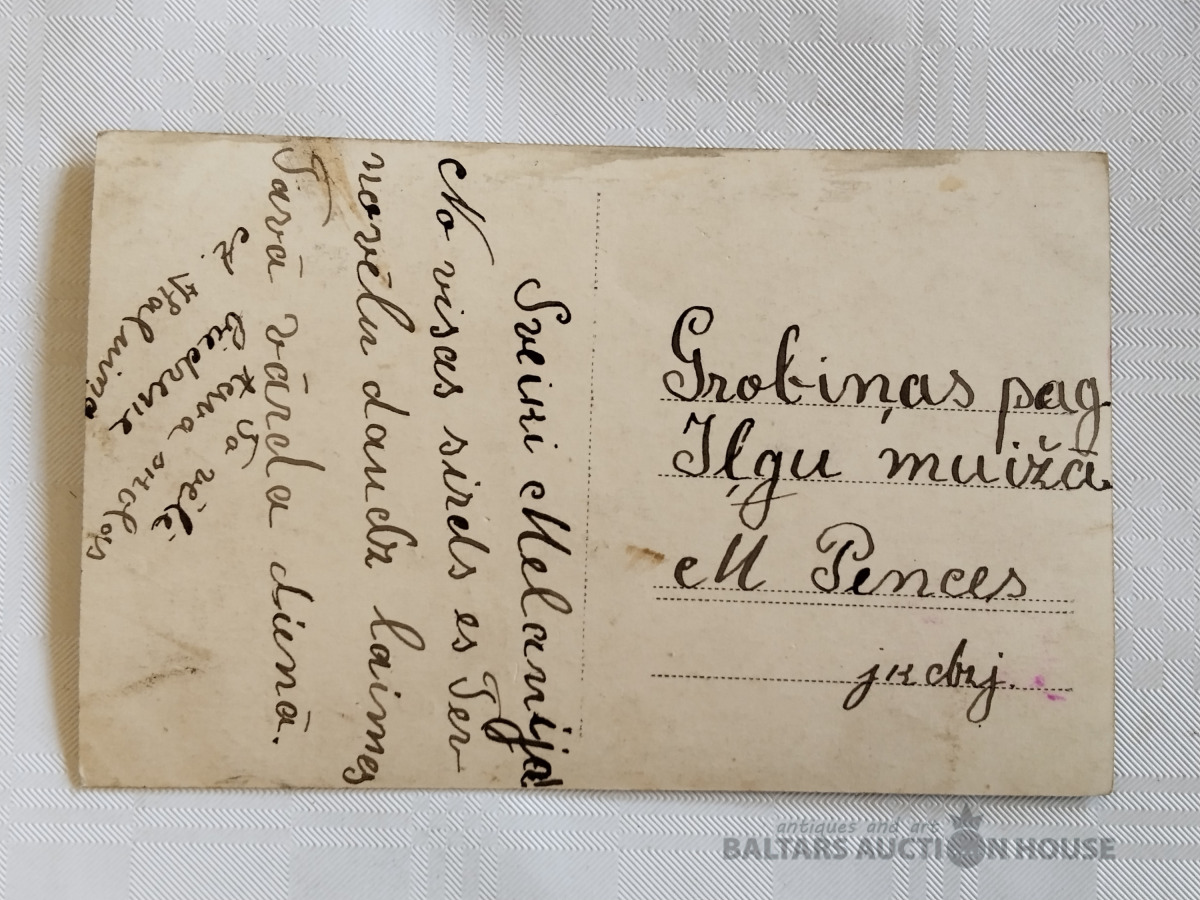 Sveiki Melanija!
No visas sirds es Tev
novēlu daudz laimes
Tavā vārda dienā.
To vēlē
tava skolas
biedrene
Grobiņas pag.
Iļgu muižā
M Pences
jkdzj.
antiques and art
BALTARS AUCTION HOUSE